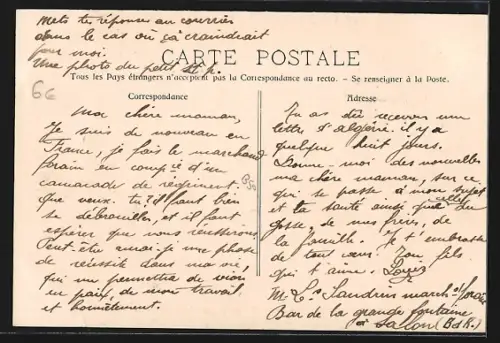 Mets tes réponses au courrier
dans le cas où ça craindrait
pour moi.
Une photo du petit st. p.
CARTE POSTALE
Tous les Pays étrangers n'acceptent pas la Correspondance au recto. — Se renseigner à la Poste.
66
Correspondance
Ma chère maman,
Je suis de nouveau en
France, je fais le marchand
forain en comp.ie d'un
camarade de régiment.
que veux-tu? il faut bien
se débrouiller, et il faut
espérer que nous réussirons
Peut-être aurai-je une phase
de réussite dans ma vie,
qui me permettra de vivre
en paix, de mon travail
et honnêtement.
Adresse
Tu as dû recevoir une
lettre d'algérie. il y a
quelque huit jours.
Donne-moi des nouvelles
ma chère maman, sur ce
qui se passe à mon sujet
et ta santé ainsi que celle du
gosse, de mes frères, de
la famille. Je t'embrasse
de tout cœur. Ton fils
qui t'aime.
M. Ls Landrin march. forain
Bar de la grande fontaine
à Salon (B d R.)